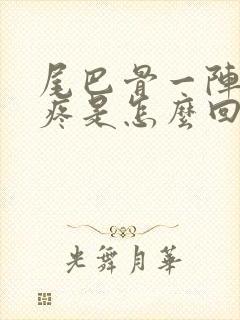 尾巴骨一陣
疼是怎麼回
光舞月華